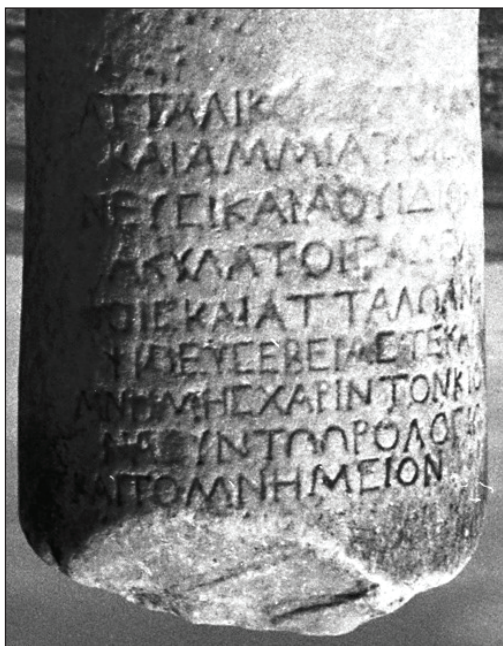 ΑΤΤΑΛΙΚΟ
ΚΑΙΑΜΜΙΑΤΟΙΣ
ΝΕΥΣΙΚΑΙΑΟΥΙΔΙΟ
ΑΚΥΛΑΤΟΙΣΑΔΕΛ
ΦΟΙΣΚΑΙΑΤΤΑΛΩΑΝ
ΥΙΩΕΥΣΕΒΕΙΑΣΤΕΚΑΙ
ΜΝΗΜΗΣΧΑΡΙΝΤΟΝΚΙΟ
ΝΑΣΥΝΤΩΩΡΟΛΟΓΙΩ
ΚΑΙΤΟΜΝΗΜΕΙΟΝ